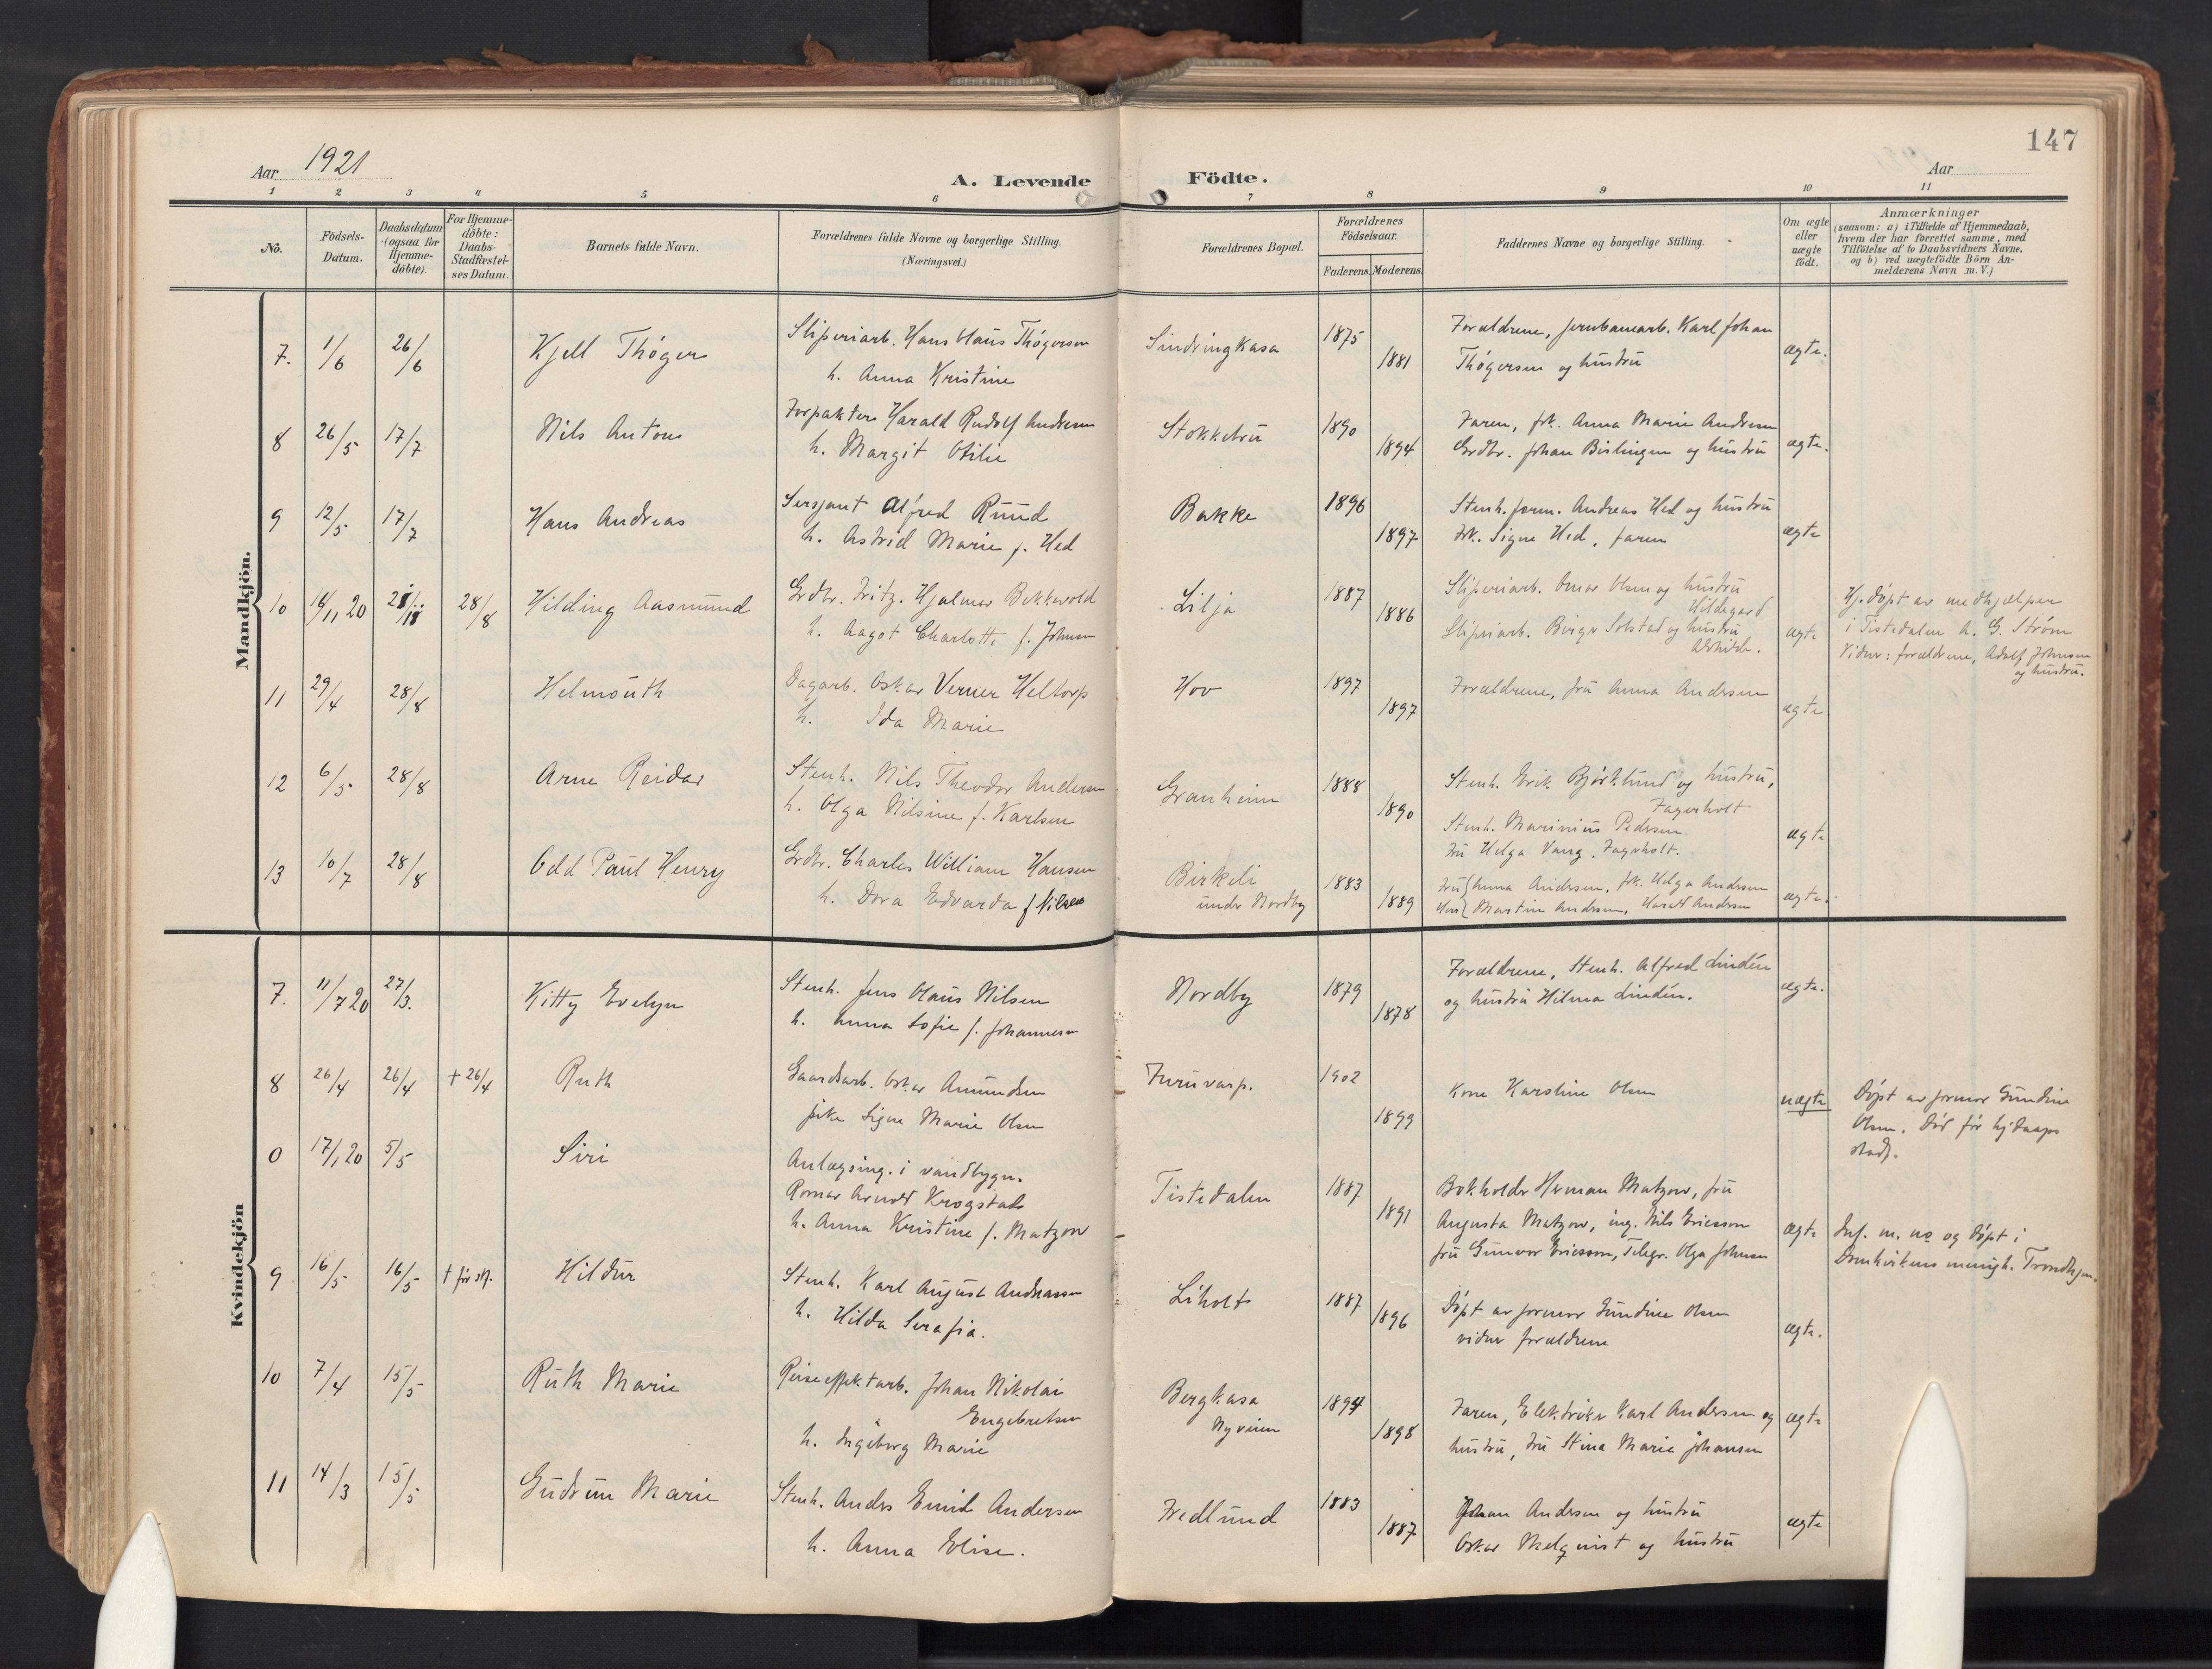 147
Aar 1921
A. Levende Födte.
Aar
1 2 3 4 5 6 7 8 9 10 11
No.
Födsels-
Datum.
Daabsdatum
(ogsaa for
Hjemme-
döbte).
For Hjemme-
döbte:
Daabs-
Stadfæstel-
ses Datum.
Barnets fulde Navn.
Forældrenes fulde Navne og borgerlige Stilling.
(Næringsvei.)
Forældrenes Bopæl.
Forældrenes
Födselsaar.
Faderens. Moderens.
Faddernes Navne og borgerlige Stilling.
Om ægte
eller
uægte
födt.
Anmærkninger
(saasom: a) i Tilfælde af Hjemmedaab,
hvem der har forrettet samme, med
Tilföielse af to Daabsvidners Navne,
og b) ved uægtefödte Börn An-
melderens Navn m. V.)
Mandkjön.
7. 1/6 26/6 Kjell Thøger
Sliperiarb. Hans Olaus Thøgersen
h. Anna Kristine
Sindringkasa 1875 1881
Forældrene, jernbanearb. Karl Johan
Thøgersen og hustru
ægte.
8 26/5 17/7 Nils Anton
Forpakter Harald Rudolf Andresen
h. Margit Otilie
Stokkebru 1890 1894
Faren, frk. Anna Marie Andresen
Grdbr. Johan Bislingen og hustru
ægte.
9 12/5 17/7 Hans Andreas
Sersjant Alfred Ruud
h. Astrid Marie f. Hed
Bakke 1896 1897
Stenh. form. Andreas Hed og hustru
frk. Signe Hed, faren
ægte
10 14/11 20 28/8 Hilding Aasmund
Grdbr. Fritz. Hjalmar Bekkevold
h. Aagot Charlotte f. Johnsen
Lilja 1887 1886
Sliperiarb. Omar Olsen og hustru
Hildegard
Sliperiarb. Birger Solstad og hustru
ægte
Hj. døpt av medhjelper
i Tistedalen A. G. Strøm
Vidner: forældrene, Adolf Johnsen
og hustru.
11 29/4 28/8 Helmouth
Dagarb. Oskar Verner Heltorp
h. Ida Marie
Hov 1897 1897
Forældrene, fru Anna Andersen
ægte
12 6/5 28/8 Arne Reidar
Stenh. Nils Theodor Andersen
h. Olga Nilsine f. Karlsen
Granheim 1888 1890
Stenh. Erik Bjørklund og hustru,
Fagerholt
Stenh. Marinius Pedersen
fru Helga Vang, Fagerholt.
ægte
13 10/7 28/8 Odd Paul Henry
Grdbr. Charles William Hansen
h. Dora Edvarda f. Nilsen
Birkeli
under Nordby
1883 1889
fru Anna Andersen, frk. Helga Andersen
Herr Martin Andersen, Harald Andersen
ægte.
Kvindekjön
7. 11/7 20 27/3. Kitty Evelyn
Stenh. Jens Olaus Nilsen
h. Anna Sofie f. Johannesen
Nordby 1879 1878
Forældrene, Stenh. Alfred Lindén
og hustru Hilma Lindén.
ægte.
8 26/4 26/4 + 26/4 Ruth
Gaardsarb. Oskar Amundsen
pike Signe Marie Olsen
Furuvarp. 1902 1899
Kone Karoline Olsen
uægte
Døpt av jormor Gundine
Olsen. Død før hj.daaps
stadf.
0 17/1 20 5/5 Siri
Anlægsing. i vandbygn.
Romar Arnold Krogstad
h. Anna Kristine f. Matzow
Tistedalen 1887 1891
Bokholder Herman Matzow, fru
Augusta Matzow, ing. Nils Ericsson
fru Gunvor Ericsson, Telegr. Olga Johnsen
ægte
Inf. m. no og døpt i
Domkirkens menigh. Trondhjem.
9 16/5 16/5 + før stf. Hildur
Stenh. Karl August Andreassen
h. Hilda Serafia.
Liholt 1887 1896
Døpt av jormor Gundine Olsen
vidner forældrene
ægte.
10 7/4 15/5 Ruth Marie
Reiseeffektarb. Johan Nikolai
Engebretsen
h. Ingeborg Marie
Bergkasa
Nyveien
1894 1898
Faren, Elektriker Karl Andersen og
hustru, fru Stina Marie Johansen
ægte
11 14/3 15/5 Gudrun Marie
Stenh. Anders Emil Andersen
h. Anna Elise.
Fredlund 1883 1887
Johan Andersen og hustru
Oskar Melqvist og hustru
ægte